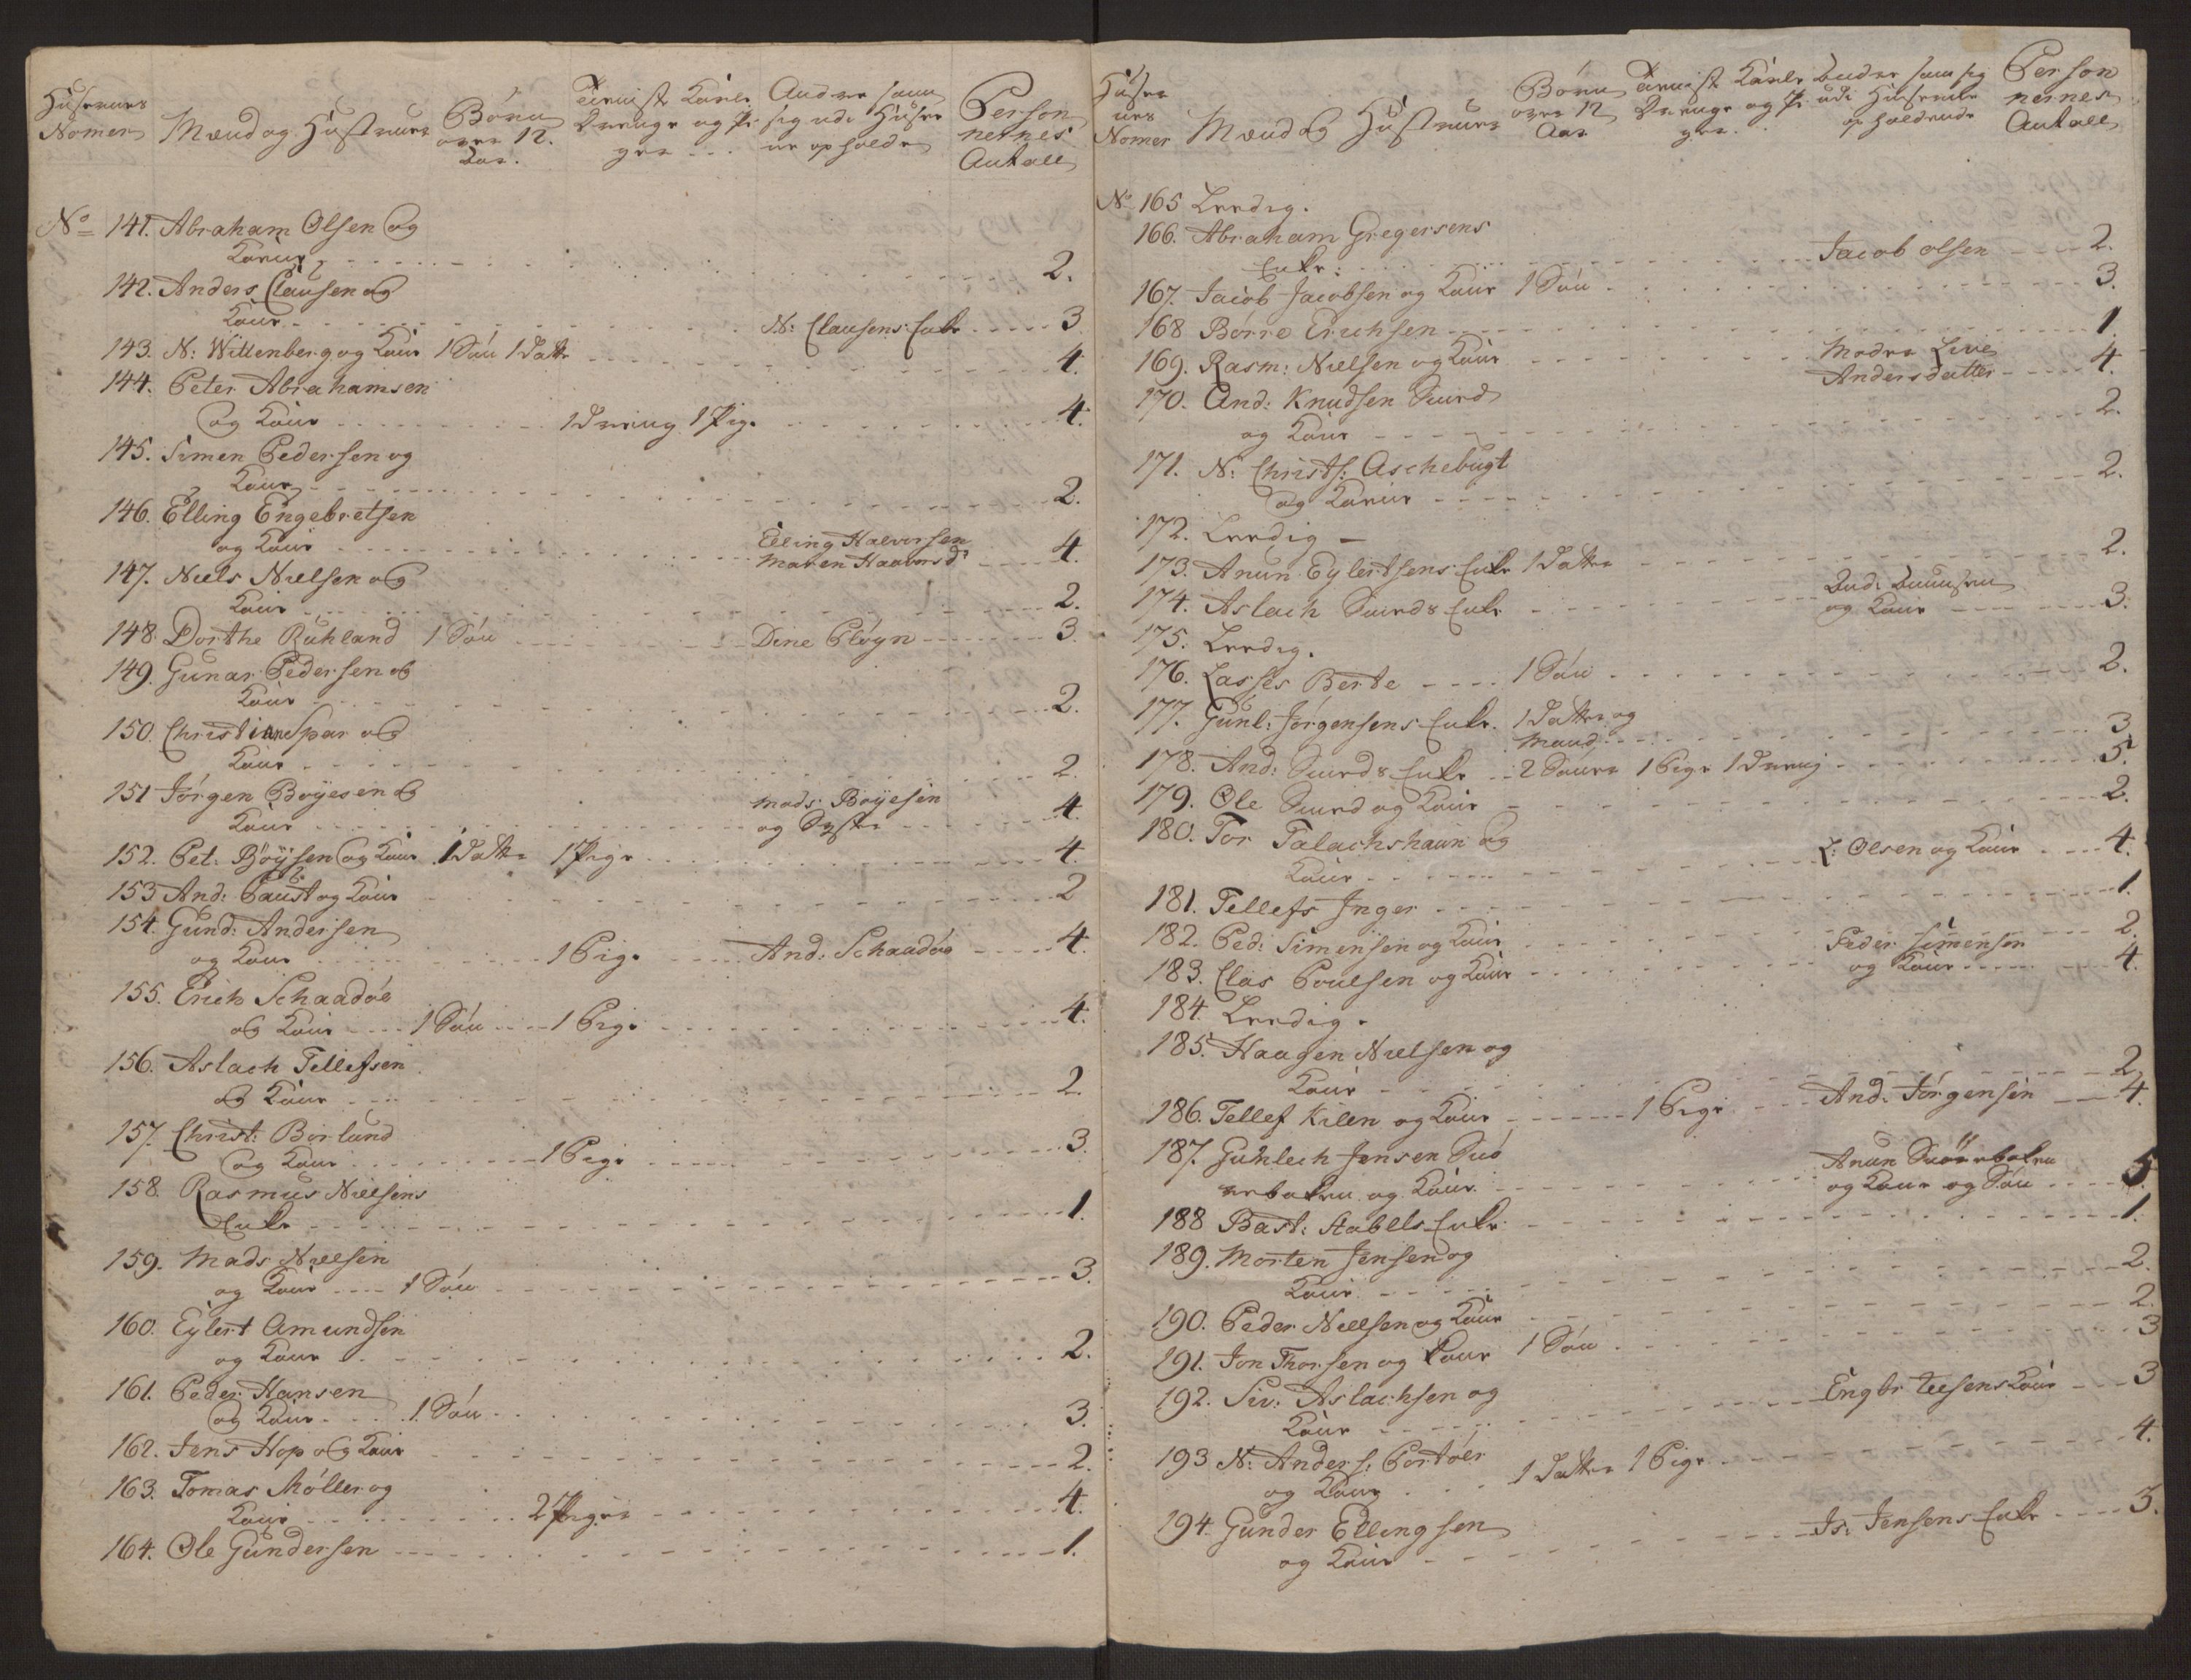 Husernes
Nomer
Mænd og Hustruer
Børn
over 12.
Aar.
Tienist Karle
Drenge og Pi
ger...
Andre som
sig udi Huse
ne opholde
Person
nernes
Antall
No 141. Abraham Olsen og
Kone 2.
142. Anders Clausen og
Kone N: Clausens Enke 3
143. N: Willenberg og Kone 1 Søn 1 Datter 4.
144. Peter Abrahamsen
og Kone 1 Dreng 1 Pige 4.
145. Simen Pedersen og
Kone 2.
146. Elling Engebretsen
og Kone Elling Halvorsen 4.
Maren Haavorsdr
147. Niels Nielsen og
Kone 2.
148. Dorthe Ruhland 1 Søn Dine Pløyn 3.
149. Gunar Pedersen og
Kone 2.
150. Christian Spar og
Kone 2.
151 Jørgen Boyesen og Mads Boyesen
Kone og Syster 4.
152. Pet: Bøysen og Kone 1 Datter 1 Pige 4.
153 And: Paust og Kone 2
154. Gund: Andersen
og Kone 1 Pige And: Schaadøe 4.
155. Erich Schaadøe
og Kone 1 Søn 1 Pige 4.
156. Aslach Tellefsen
og Kone 2.
157. Christ: Borlund
og Kone 1 Pige 3.
158. Rasmus Nielsens
Enke 1.
159. Mads Nielsen
og Kone 1 Søn 3.
160. Eylert Amundsen
og Kone 2.
161. Peder Hansen
og Kone 1 Søn 3.
162. Jens Hop og Kone 2.
163. Tomas Møller og
Kone 2 Piger 4.
164. Ole Gundersen 1.
Huser
nes
Nomer
Mænd og Hustruer
Børn
over 12
Aar
Tienist Karle
Drenge og Pi
ger.
Andre som sig
udi Huserne
opholdende
Person
nernes
Antall
No 165 Leedig.
166. Abraham Gregersens
Enke Jacob Olsen 2.
167. Jacob Jacobsen og Kone 1 Søn 3.
168 Børre Erichsen 1.
169. Rasm: Nielsen og Kone Moder Live
Andersdatter 4.
170. And: Knudsen Smed
og Kone 2.
171. N: Christs: Aschebugt
og Kone 2.
172. Leedig
173. Anun Eylertsens Enke 1 Datter 2.
174. Aslach Smeds Enke And: Anunsen
og Kone 3.
175. Leedig.
176. Lasses Berte 1 Søn 2.
177. Gunl: Jørgensens Enke 1 Datter og
Mand 3
178. And: Smeds Enke 2 Sønner 1 Pige 1 Dreng 5.
179. Ole Smed og Kone 2.
180. Tor Talachshaun og
Kone L: Olsen og Kone 4.
181. Tellefs Inger 1.
182. Ped: Simensen og Kone 2.
183. Clas Poulsen og Kone Peder Simensen
og Kone 4.
184. Leedig.
185. Haagen Nielsen og
Kone 2.
186. Tellef Kilen og Kone 1 Pige And: Jørgensen 4.
187. Guhlech Jensen Snø
rebaken og Kone Anun Snørebaken
og Kone og Søn 5.
188 Bast: Stabells Enke 1.
189. Morten Jensen og
Kone 2.
190. Peder Nielsen og Kone 2.
191. Jon Thorsen og Kone 1 Søn 3
192. Siv: Aslachsen og
Kone Engbr Teesens Kone 3
193 N: Anders: Portøer
og Kone 1 Datter 1 Pige 4.
194. Gunder Ellingsen
og Kone Js: Jensens Enke 3.